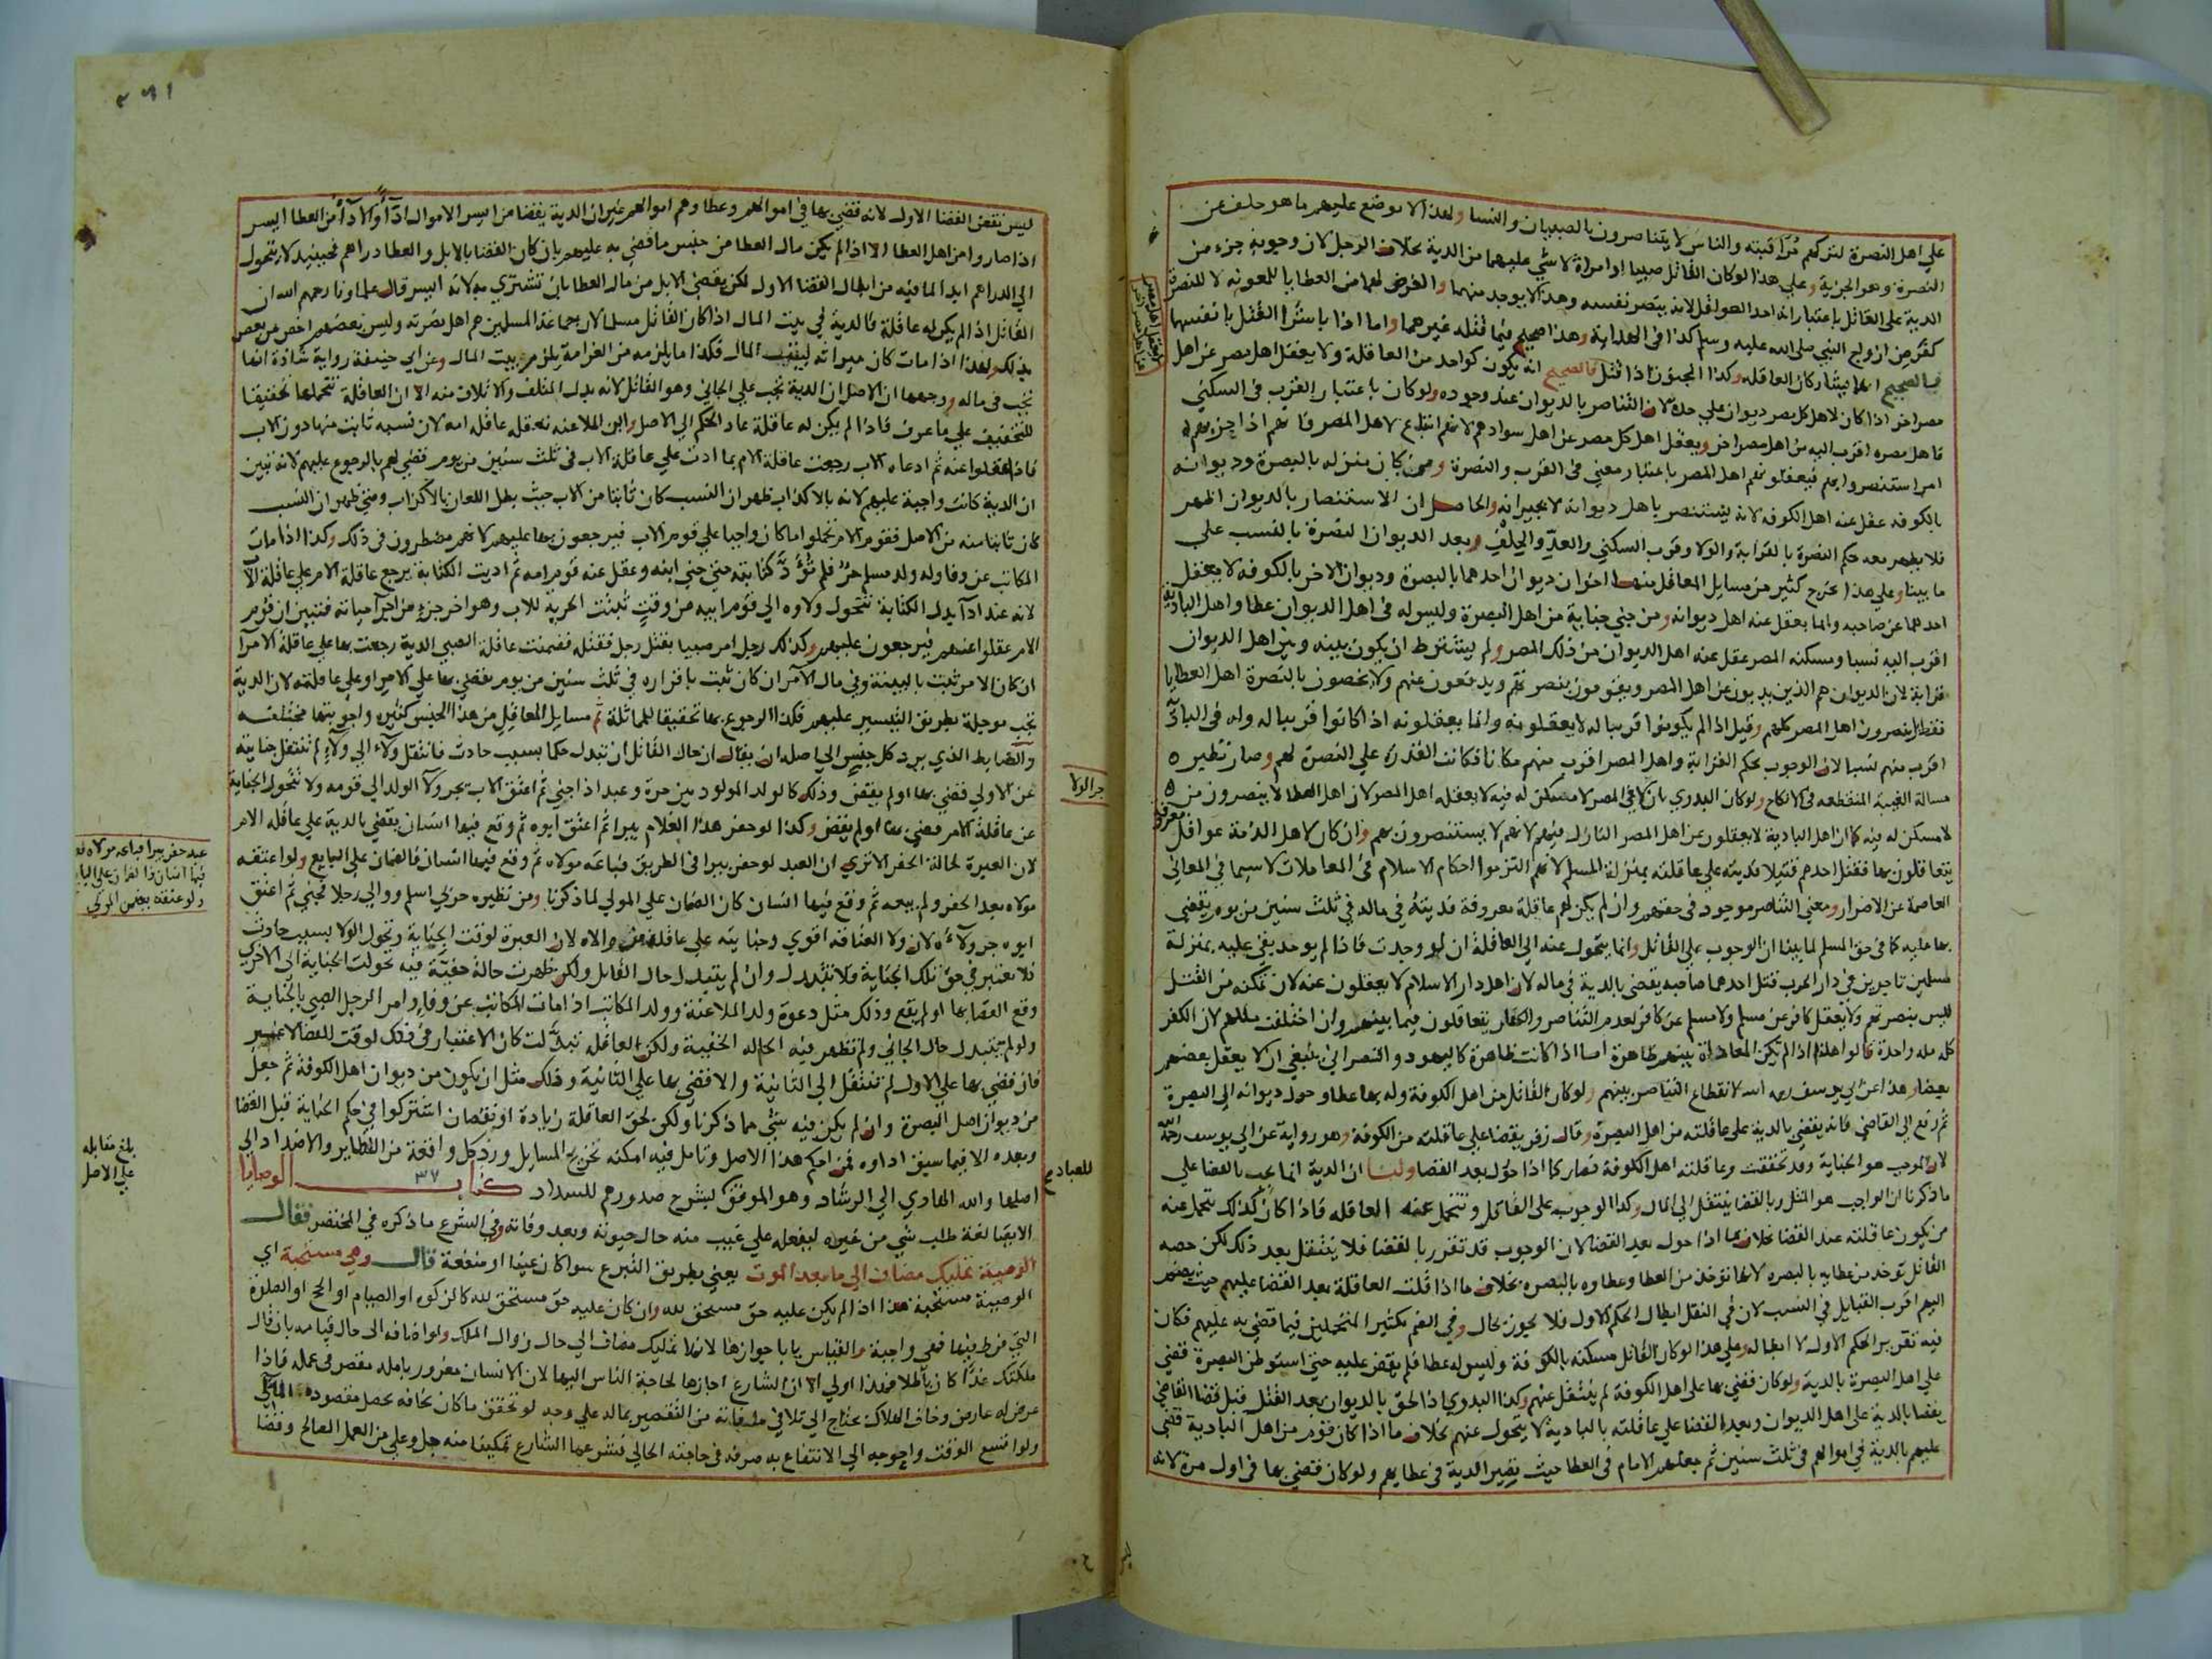 علي اهل النصرة لتركهم مراقبته والناس لا يتناصرون بالصبيان والنسا ولهذا لا يوضع عليهم ما هو خلف عن
النصرة وهو الجزية وعلي هذا لو كان القاتل صبيا او امراة لا شي عليهما من الدية بخلاف الرجل لان وجوب جزء من
الدية علي القاتل باعتبار انه احد العواقل لانه ينصر نفسه وهذا لا يوجد منهما والفرض لهما من العطايا للمعونة لا للنصرة
كفرض ازواج النبي صلي الله عليه وسلم كذا في الهداية وهذا صحيح فيما قتله غيرهما واما اذا باشرا القتل بانفسهما
فالصحيح انهما يشاركان العاقلة وكذا المجنون اذا قتل فالصحيح انه يكون كواحد من العاقلة ولا يعقل اهل مصر عن اهل
مصر اخر اذا كان لاهل كل مصر ديوان علي حدة لان التناصر بالديوان عند وجوده ولو كان باعتبار القرب في السكني
فاهل مصره اقرب اليه من اهل مصر اخر ويعقل اهل كل مصر عن اهل سوادهم لانهم اتباع لاهل المصر فانهم اذا حزبهم
امر استنصروا بهم فيعقلونهم اهل المصر باعتبار معني في القرب والنصرة ومن كان منزله بالبصرة وديوانه
بالكوفة عقل عنه اهل الكوفة لانه يستنصر باهل ديوانه لا بجيرانه والحاصل ان الاستنصار بالديوان اظهر
فلا يظهر معه حكم النصرة بالقرابة والولا وقرب السكني والعد والحلف وبعد الديوان النصرة بالنسب علي
ما بينا وعلي هذا يخرج كثير من مسايل المعاقل منها اخوان ديوان احدهما بالبصرة وديوان الاخر بالكوفة لا يعقل
احدهما عن صاحبه وانما يعقل عنه اهل ديوانه ومن جني جناية من اهل البصرة وليس له في اهل الديوان عطا واهل البادية
اقرب اليه نسبا ومسكنه المصر عقل عنه اهل الديوان من ذلك المصر ولم يشترط ان يكون بينه وبين اهل الديوان
قرابة لان الديوان هم الذين يذبون عن اهل المصر ويقومون بنصرتهم ويدفعون عنهم ولا يخصون بالنصرة اهل العطايا
فقط بل ينصرون اهل المصر كلهم وقيل اذا لم يكونوا قريبا له لا يعقلونه وانما يعقلونه اذا كانوا قريبا له وله في البادية
اقرب منهم نسبا لان الوجوب بحكم القرابة واهل المصر اقرب منهم مكانا فكانت القدرة علي النصرة لهم وصار نظير
مسالة الغيبة المنقطعة في الانكاح ولو كان البدوي نازلا في المصر لا مسكن له فيه لا يعقله اهل المصر لان اهل العطا لا ينصرون من
لا مسكن له فيه كما ان اهل البادية لا يعقلون عن اهل المصر النازل فيهم لانهم لا يستنصرون بهم وان كان لاهل الذمة عواقل معروفة
يتعاقلون بها فقتل احدهم قتيلا فديته علي عاقلته بمنزلة المسلم لانهم التزموا احكام الاسلام في المعاملات لا سيما في المعاني
العاصمة عن الاضرار ومعني التناصر موجود في حقهم وان لم يكن لهم عاقلة معروفة فديته في ماله في ثلث سنين من يوم يقضي
بها عليه كما في حق المسلم لما بينا ان الوجوب علي القاتل وانما يتحول عنه الي العاقلة ان لو وجدت فاذا لم يوجد بقي عليه بمنزلة
مسلمين تاجرين في دار الحرب قتل احدهما صاحبه يقضي بالدية في ماله لان اهل دار الاسلام لا يعقلون عنه لان تمكنه من القتل
ليس بنصرتهم ولا يعقل كافر عن مسلم ولا مسلم عن كافر لعدم التناصر والكفار يتعاقلون فيما بينهم وان اختلفت مللهم لان الكفر
كله ملة واحدة قالوا هذا اذا لم تكن المعاداة بينهم ظاهرة اما اذا كانت ظاهرة كاليهود والنصراني ينبغي ان لا يعقل بعضهم
بعضا وهذا عن ابي يوسف رحمه الله لانقطاع التناصر بينهم ولو كان القاتل من اهل الكوفة وله بها عطا وحول ديوانه الي البصرة
ثم رفع الي القاضي فانه يقضي بالدية علي عاقلته من اهل البصرة وقال زفر يقضا علي عاقلته من الكوفة وهو رواية عن ابي يوسف رحمه الله
لان الموجب هو الجناية وقد تحققت وعاقلته اهل الكوفة فصار كما اذا حول بعد القضا ولنا ان الدية انما تجب بالقضا علي
ما ذكرنا ان الواجب هو المثل وبالقضا ينتقل الي المال وكذا الوجوب علي القاتل وتتحمل عنه العاقلة فاذا كان كذلك يتحمل عنه
من يكون عاقلته عند القضا بخلاف ما اذا حول بعد القضا لان الوجوب قد تقرر بالقضا فلا ينتقل بعد ذلك لكن حصه
القاتل توخذ من عطايه بالبصره لانها توخذ من العطا وعطاوه بالبصره بخلاف ما اذا قلت العاقلة بعد القضا عليهم حيث يضم
اليهم اقرب القبايل في النسب لان في النقل ابطال الحكم الاول فلا يجوز بحال وفي الضم تكثير المتحملين فيما قضي به عليهم فكان
فيه تقرير الحكم الاول لا ابطاله وعلي هذا لو كان القاتل مسكنه بالكوفة وليس له عطا فلم يقض عليه حتي استوطن البصرة قضي
علي اهل البصرة بالدية ولو كان قضي بها علي اهل الكوفة لم ينتقل عنهم وكذا البدوي اذا لحق بالديوان بعد القتل قبل قضا القاضي
يقضا بالدية علي اهل الديوان وبعد القضا علي عاقلته بالبادية لا يتحول عنهم بخلاف ما اذا كان قوم من اهل البادية قضي
عليهم بالدية في اموالهم في ثلث سنين ثم جعلهم الامام في العطا حيث يصير الدية في عطايهم ولو كان قضي بها في اول مرة لانه
٣٩١
ليس نقض القضا الاول لانه قضي بها في اموالهم وعطاوهم اموالهم غير ان الدية يقضا من ايسر الاموال ادآ والادآ من العطا ايسر
اذا صاروا من اهل العطا الا اذا لم يكن مال العطا من جنس ما قضي به عليهم بان كان القضا بالابل والعطا دراهم فحينيذ لا يتحول
الي الدراهم ابدا لما فيه من ابطال القضا الاول لكن يقضي الابل من مال العطا بان تشتري به لانه ايسر قال علماونا رحمهم الله ان
القاتل اذا لم يكن له عاقلة فالدية في بيت المال اذا كان القاتل مسلما لان جماعة المسلمين هم اهل نصرته وليس بعضهم اخص من بعض
بذلك ولهذا اذا مات كان ميراثه لبيت المال فكذا ما يلزمه من الغرامة يلزم بيت المال وعن ابي حنيفة رواية شاذة انها
تجب في ماله ووجهها ان الاصل ان الدية تجب علي الجاني وهو القاتل لانه بدل المتلف والاتلاف منه الا ان العاقلة تتحملها تحقيقا
للتخفيف علي ما عرف فاذا لم يكن له عاقلة عاد الحكم الي الاصل وابن الملاعنة تعقله عاقلة امه لان نسبه ثابت منها دون الاب
فاذا عقلوا عنه ثم ادعاه الاب رجعت عاقلة الام بما ادت علي عاقلة الاب في ثلث سنين من يوم قضي لهم بالرجوع عليهم لانه تبين
ان الدية كانت واجبة عليهم لانه بالاكذاب ظهر ان النسب كان ثابتا من الاب حيث بطل اللعان بالاكذاب ومتي ظهر ان النسب
كان ثابتا منه من الاصل فقوم الام تحملوا ما كان واجبا علي قوم الاب فيرجعون بها عليهم لانهم مضطرون في ذلك وكذا اذا مات
المكاتب عن وفا وله ولد مسلم حر فلم تؤد كتابته حتي جني ابنه وعقل عنه قوم امه ثم اديت الكتابة يرجع عاقلة الام علي عاقلة الاب
لانه عند ادآ بدل الكتابة تتحول ولاوه الي قوم ابيه من وقت ثبتت الحرية للاب وهو اخر جزء من اجزآ حياته فتبين ان قوم
الام عقلوا عنهم فيرجعون عليهم وكذلك رجل امر صبيا بقتل رجل فقتله فضمنت عاقلة الصبي الدية رجعت بها علي عاقلة الآمر
ان كان الامر ثبت بالبينة وفي مال الآمر ان كان ثبت باقراره في ثلث سنين من يوم يقضي بها علي الامر او علي عاقلته لان الدية
تجب موجلة بطريق التيسير عليهم فكذا الرجوع بها تحقيقا للمماثلة ثم مسايل المعاقل من هذا الجنس كثيره واجوبتها مختلفه
والضابط الذي يرد كل جنس الي اصله ان يقال ان حال القاتل ان تبدل حكما بسبب حادث فانتقل ولآء الي ولآء لم تنتقل جنايته
عن الاولي قضي بها او لم يقض وذلك كالولد المولود بين حرة وعبد اذا جني ثم اعتق الاب تجر ولآ الولد الي قومه ولا تتحول الجناية
عن عاقلة الام قضي بها او لم يقض وكذا لو حفر هذا الغلام بيرا ثم اعتق ابوه ثم وقع فيها انسان يقضي بالدية علي عاقلة الام
لان العبرة لحالة الحفر الا تري ان العبد لو حفر بيرا في الطريق فباعه مولاه ثم وقع فيها انسان فالضمان علي البايع ولو اعتقه
مولاه بعد الحفر ولم يبعه ثم وقع فيها انسان كان الضمان علي المولي لما ذكرنا ومن نظيره حربي اسلم ووالي رجلا فجني ثم اعتق
ابوه جر ولآءه لان ولا العتاقة اقوي وجنايته علي عاقلة من والاه لان العبرة لوقت الجناية وتحول الولا بسبب حادث
فلا يعتبر في حق تلك الجناية فلا تتبدل وان لم يتبدل حال القاتل ولكن ظهرت حالة خفية فيه تحولت الجناية الي الاخري
وقع القضا بها او لم يقع وذلك مثل دعوة ولد الملاعنة وولد المكاتب اذا مات المكاتب عن وفاء وامر الرجل الصبي بالجناية
ولو لم يتبدل حال الجاني ولم تظهر فيه الحالة الخفية ولكن العاقلة تبدلت كان الاعتبار في ذلك لوقت القضا لا غير
فان قضي بها علي الاول لم تنتقل الي الثانية والا قضي بها علي الثانية وذلك مثل ان يكون من ديوان اهل الكوفة ثم جعل
من ديوان اهل البصرة وان لم يكن فيه شي مما ذكرنا ولكن لحق العاقلة زيادة او نقصان اشتركوا في حكم الجناية قبل القضا
وبعده الا فيما سبق اداوه فمن احكم هذا الاصل وتامل فيه امكنه تخريج المسايل ورد كل واقعة من النظاير والاضداد الي
اصلها والله الهادي الي الرشاد وهو الموفق ليشرح صدورهم للسداد كتاب ٣٧ الوصايا
الايصا لغة طلب شي من غيره ليفعله علي غيب منه حال حيوته وبعد وفاته وفي الشرع ما ذكره في المختصر فقال
الوصية تمليك مضاف الي ما بعد الموت يعني بطريق التبرع سوا كان عينا او منفعة قال وهي مستحبة اي
الوصية مستحبة هذا اذا لم يكن عليه حق مستحق لله وان كان عليه حق مستحق لله كالزكوة او الصيام او الحج او الصلوة
التي فرط فيها فهي واجبة والقياس يابا جوازها لانها تمليك مضاف الي حال زوال الملك ولو اضافه الي حال قيامه بان قال
ملكتك غدا كان باطلا فهذا اولي الا ان الشارع اجازها لحاجة الناس اليها لان الانسان مغرور بامله مقصر في عمله فاذا
عرض له عارض وخاف الهلاك يحتاج الي تلافي ما فاته من التقصير بماله علي وجه لو تحقق ما كان يخافه يحصل مقصوده المالي
ولو اتسع الوقت واحوجه الي الانتفاع به صرفه في حاجته الحالي فشرعها الشارع تمكينا منه جل وعلي من العمل الصالح وقضا
جر الولا
عبد حفر بيرا فباعه مولاه
فيها انسان فالضمان علي البايع
ولو عتقه يضمن المولي
بلغ مقابله
علي الاصل